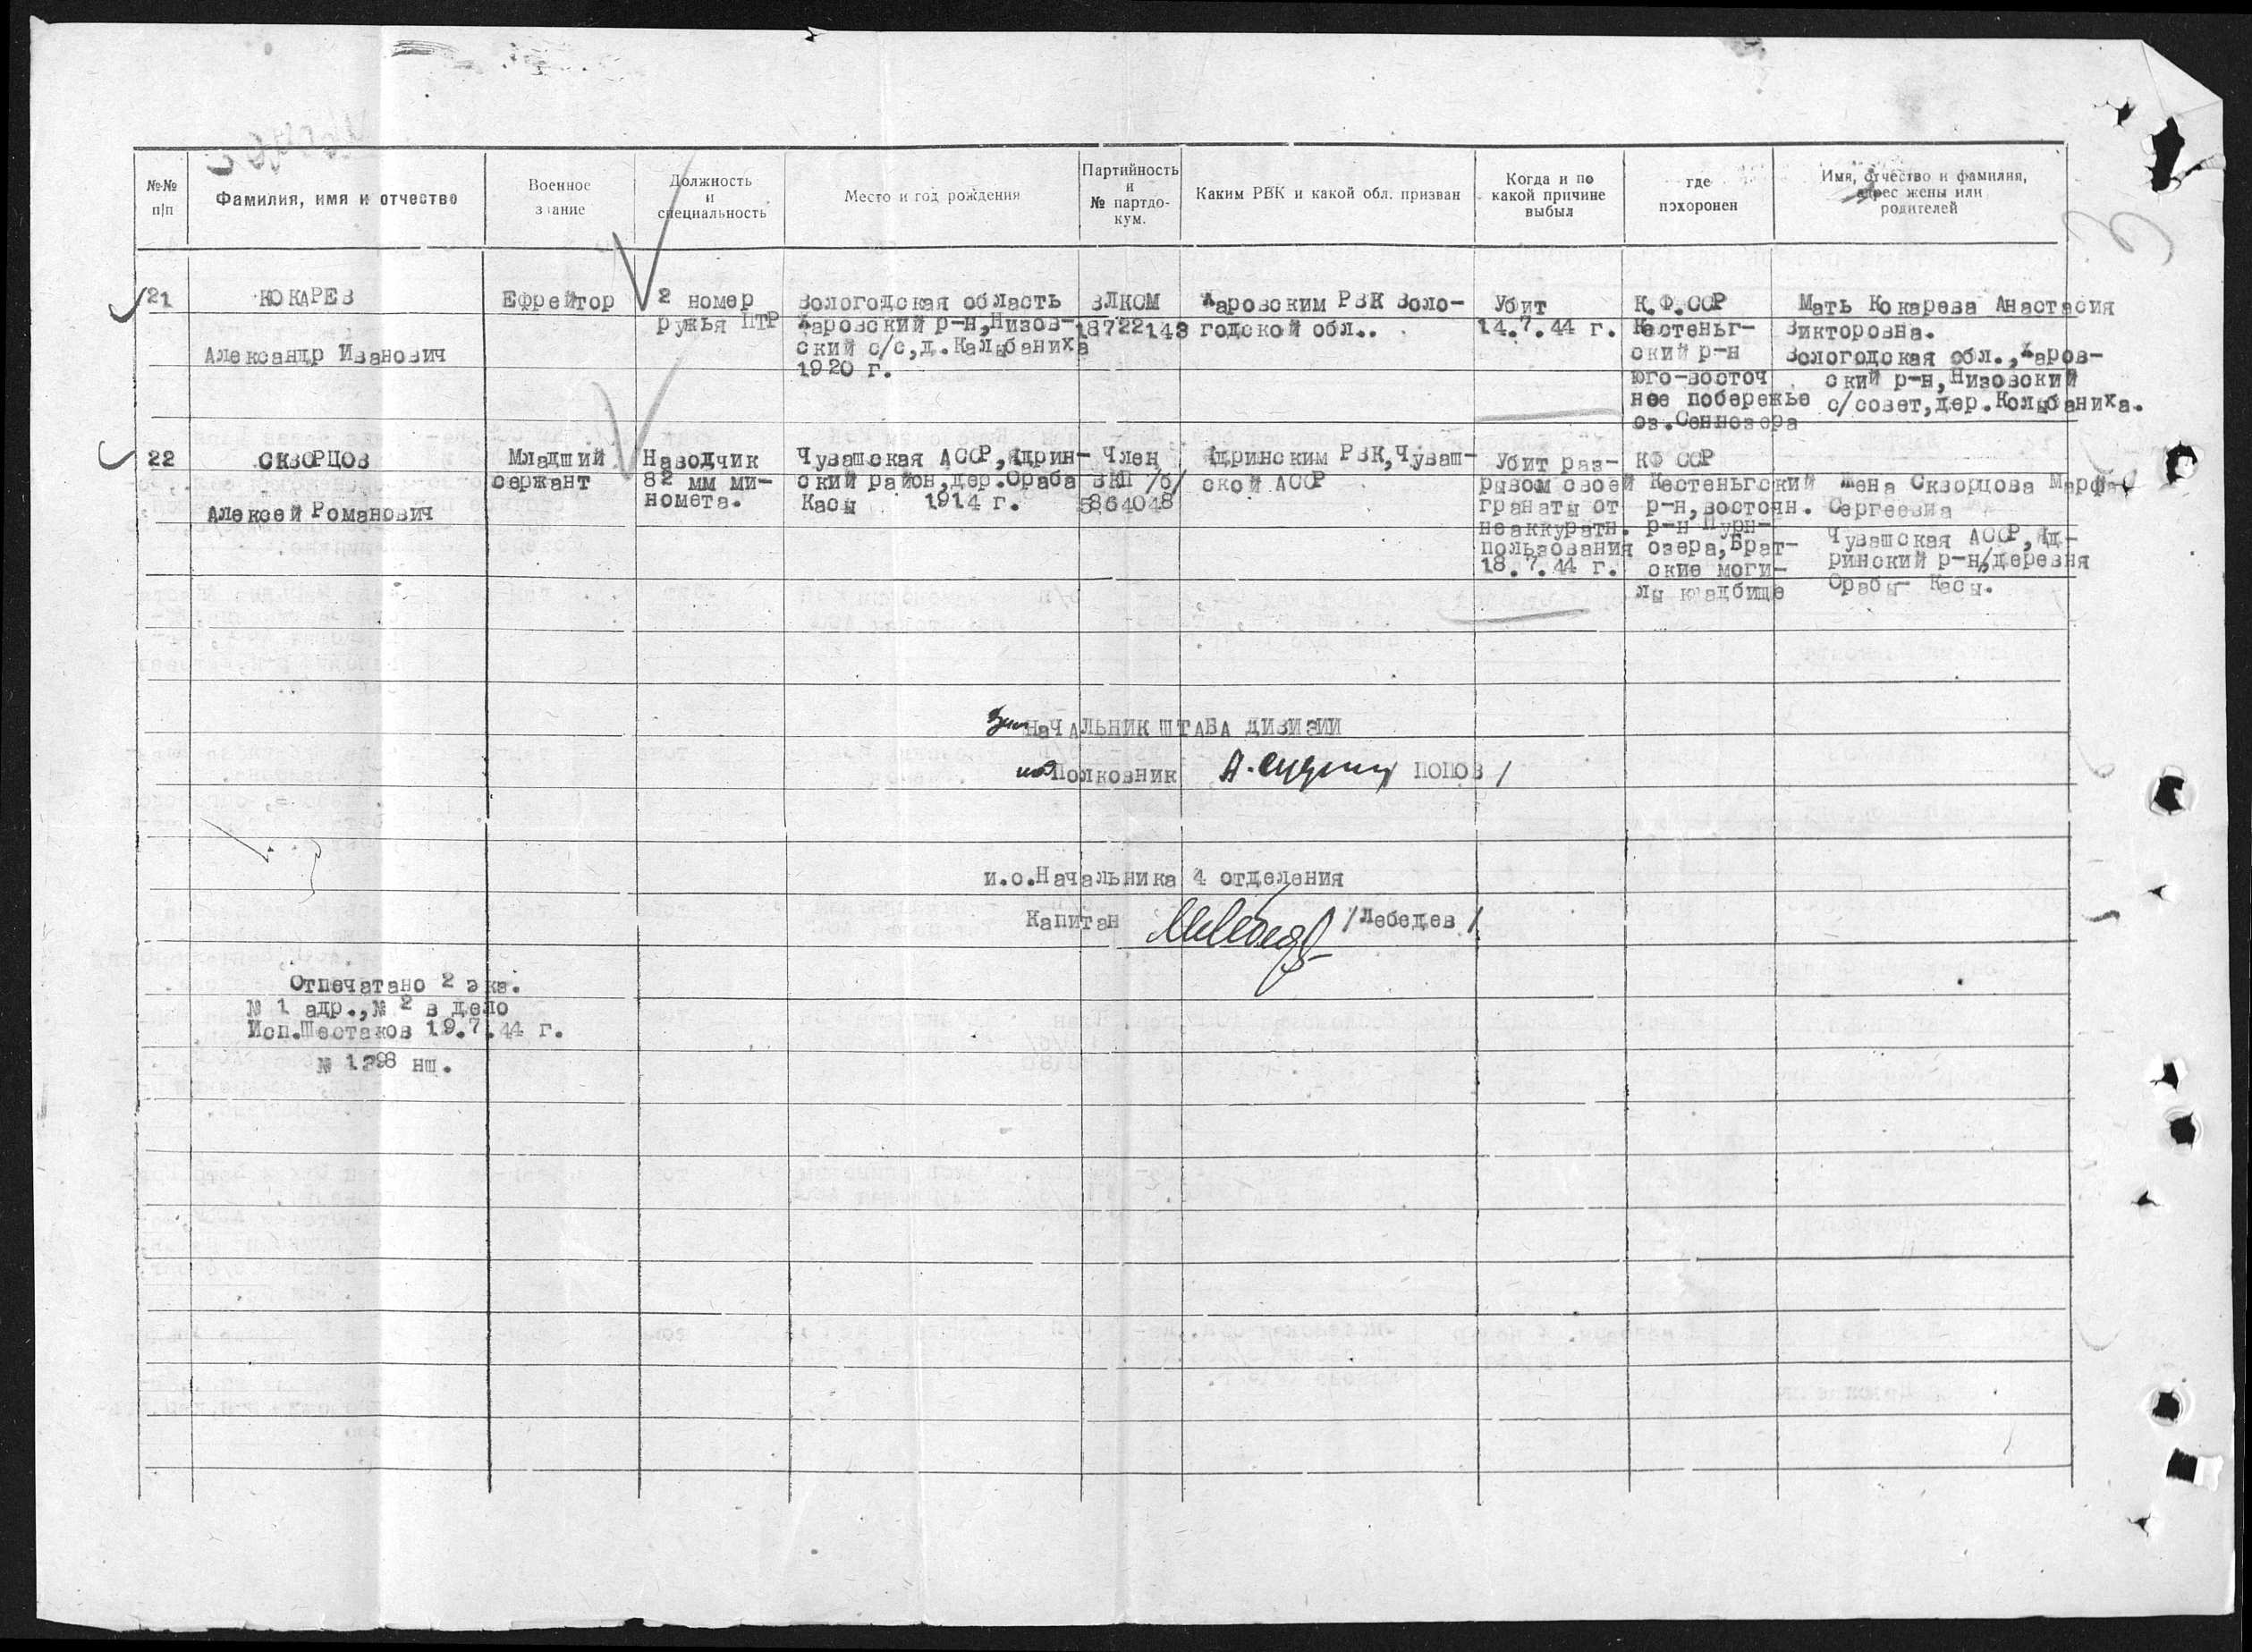 №№ п/п
Фамилия, имя и отчество
Военное звание
Должность и специальность
Место и год рождения
Партийность и № партдокум.
Каким РВК и какой обл. призван
Когда и по какой причине выбыл
где похоронен
Имя, отчество и фамилия, адрес жены или родителей
21
КОКАРЕВ
Александр Иванович
Ефрейтор
2 номер
ружья ПТР
Вологодская область
Харовский р-н,Низов-
ский с/с,д.Калыбаниха
1920 г.
ВЛКСМ
18722143
Харовским РВК Воло-
годской обл..
Убит
14.7.44 г.
К.Ф.ССР
Кестеньг-
ский р-н
юго-восточ
ное побережье
оз.Сеннозера
Мать Кокарева Анастасия
Викторовна.
Вологодская обл.,Харов-
ский р-н,Низовский
с/совет,дер.Колыбаниха.
22
СКВОРЦОВ
Алексей Романович
Младший
сержант
Наводчик
82 мм ми-
номета.
Чувашская АССР,Ядрин-
ский район,дер.Ораба
Касы 1914 г.
Член
ВКП /б/
5864048
Ядринским РВК,Чуваш-
ской АССР
Убит раз-
рывом своей
гранаты от
неаккуратн.
пользования
18.7.44 г.
КФ ССР
Кестеньгский
р-н,восточн.
р-н Пурн-
озера,Брат-
ские моги-
лы кладбище
Жена Скворцова Марфа
Сергеевна
Чувашская АССР,Яд-
ринский р-н,деревня
Орабы- Касы.
Зам НАЧАЛЬНИК ШТАБА ДИВИЗИИ
под Полковник ПОПОВ /
и.о.Начальника 4 отделения
Капитан /Лебедев/
Отпечатано 2 экз.
№ 1 адр.,№ 2 в дело
Исп.Шестаков 19.7.44 г.
№ 1298 нш.